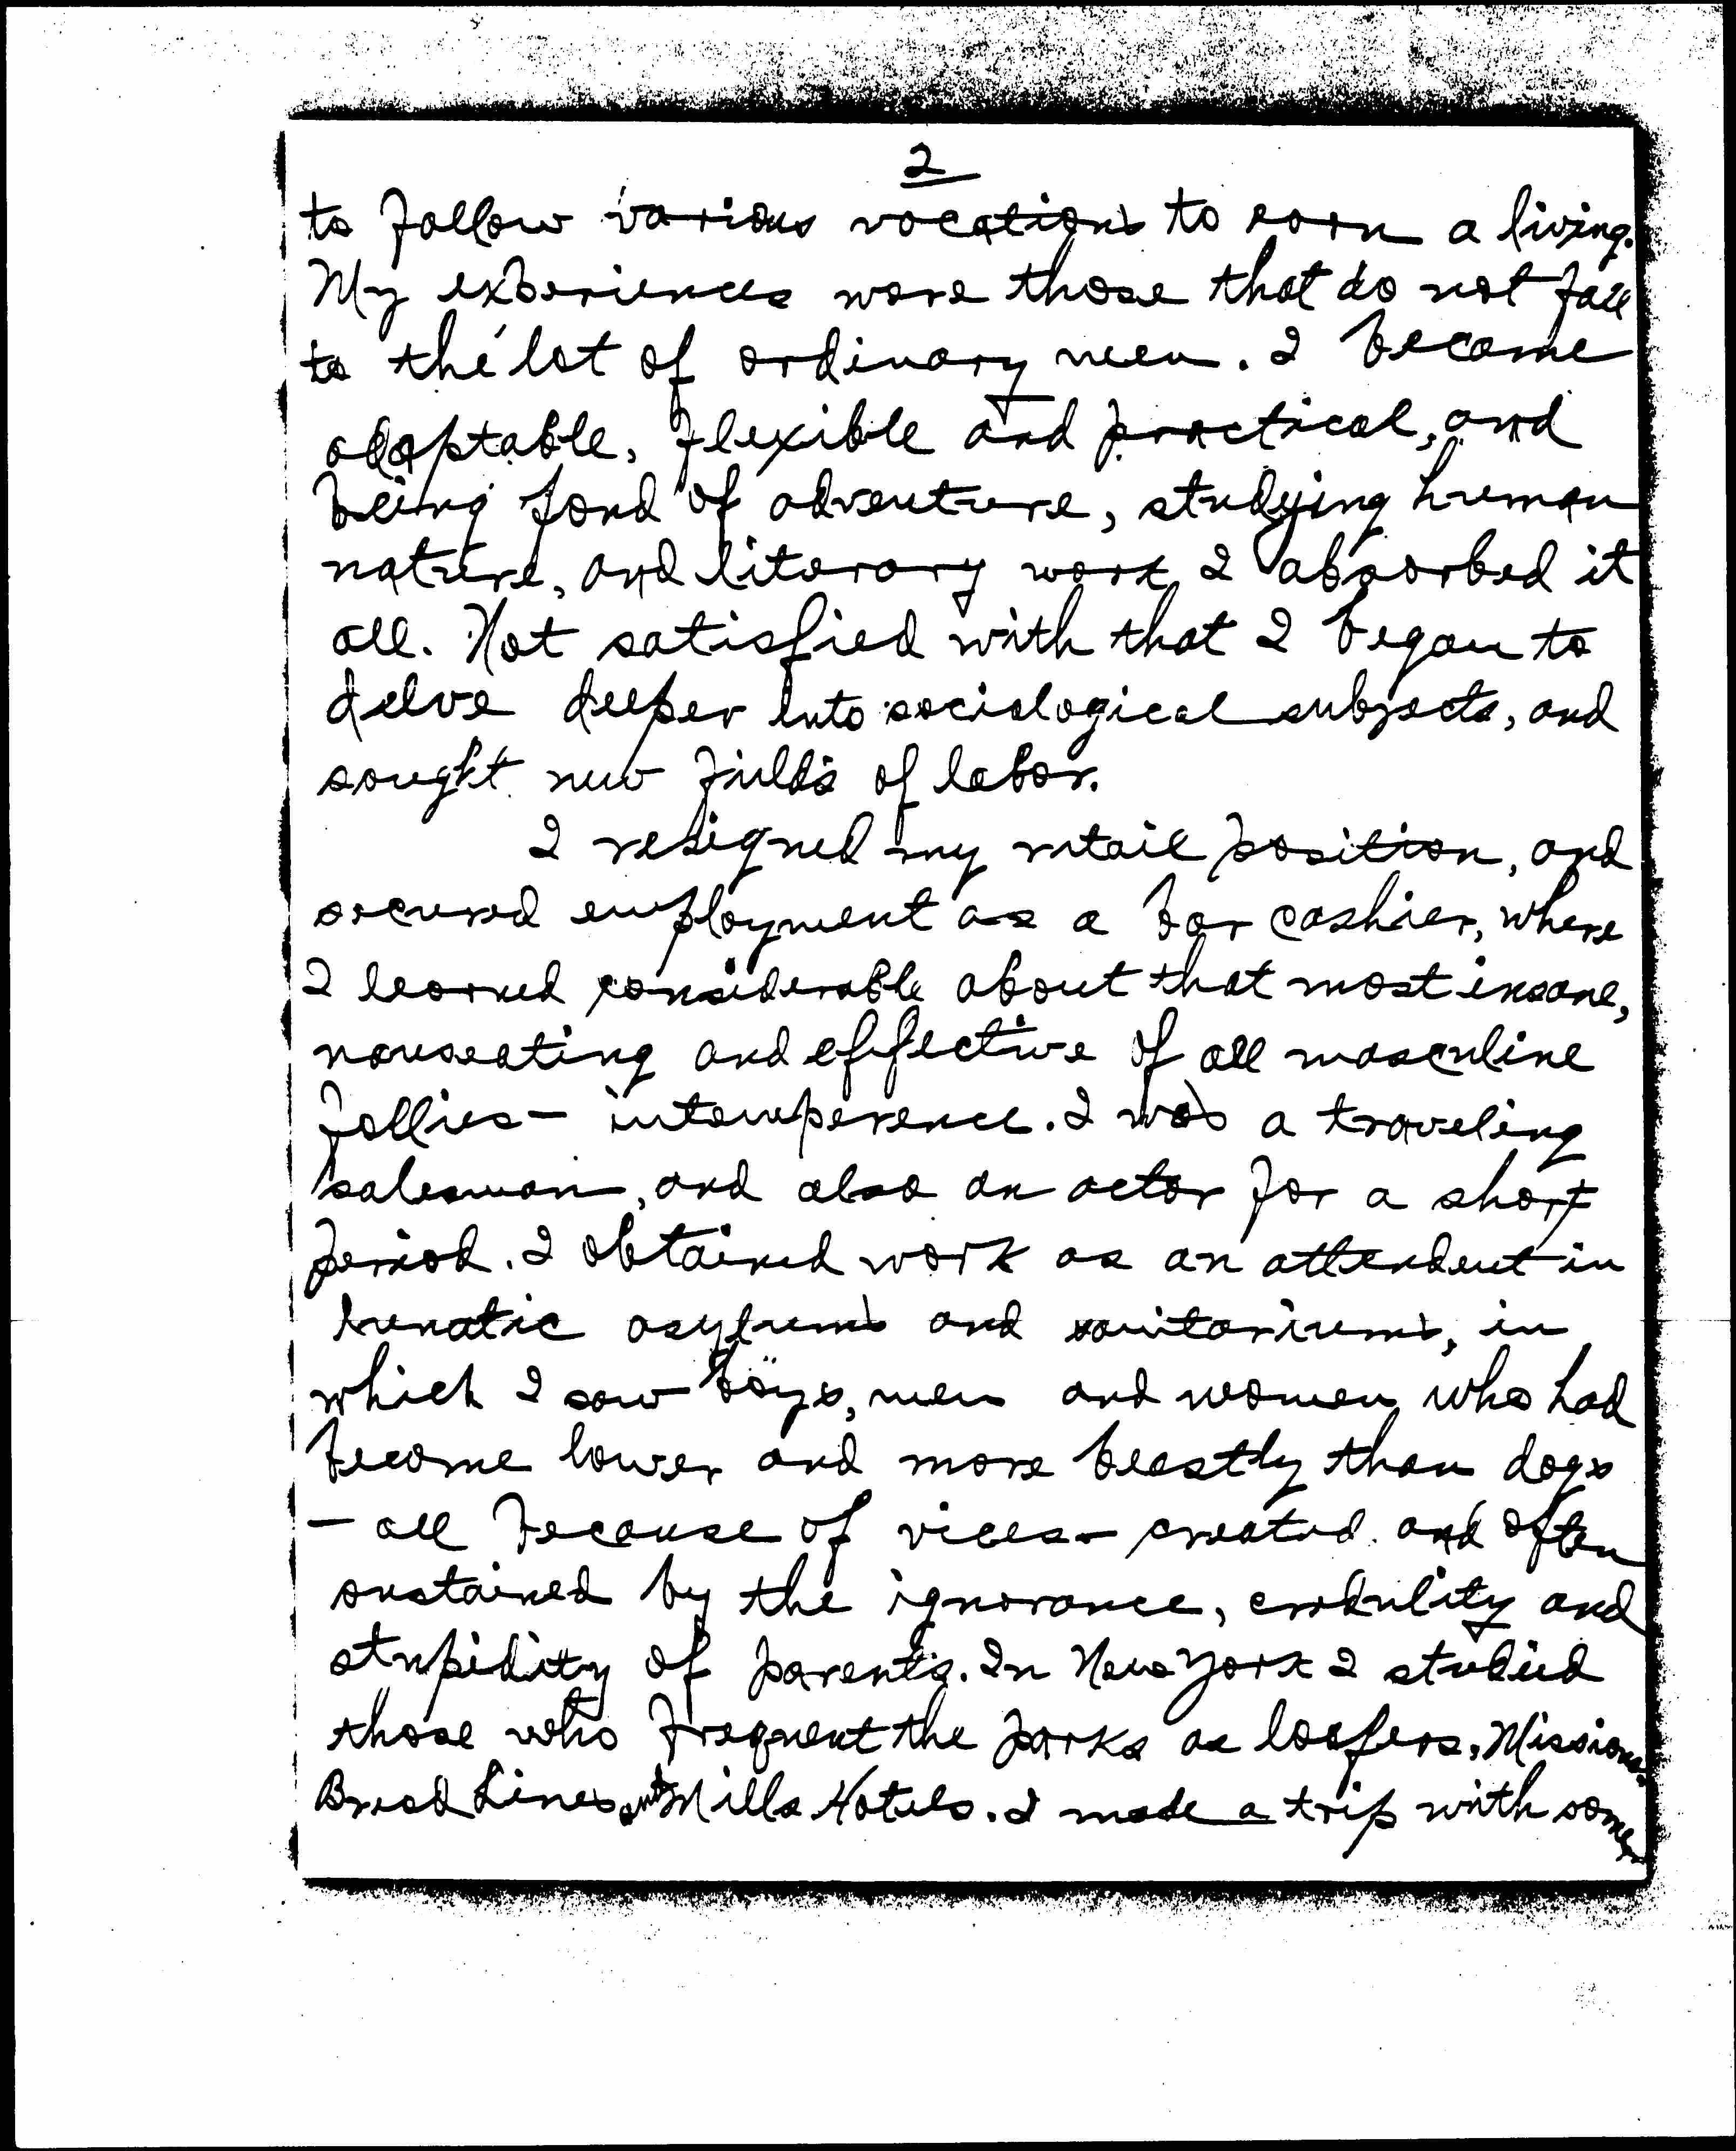 2
to follow various vocations to earn a living.
My experiences were those that do not fall
to the lot of ordinary men. I became
adaptable, flexible and practical, and
being fond of adventure, studying human
nature, and literary work I absorbed it
all. Not satisfied with that I began to
delve deeper into sociological subjects, and
sought new fields of labor.
I resigned my retail position, and
secured employment as a bar cashier, where
I learned considerable about that most insane,
nauseating and effective of all masculine
follies - intemperence. I was a traveling
salesman, and also an actor for a short
period. I obtained work as an attendent in
lunatic asylums and sanitariums, in
which I saw boys, men and women who had
become lower and more beastly than dogs
- all because of vices - created and often
sustained by the ignorance, credulity and
stupidity of parents. In New York I studied
those who frequent the parks as loafers, Missions,
Bread Lines and Mills Hotels. I made a trip with some